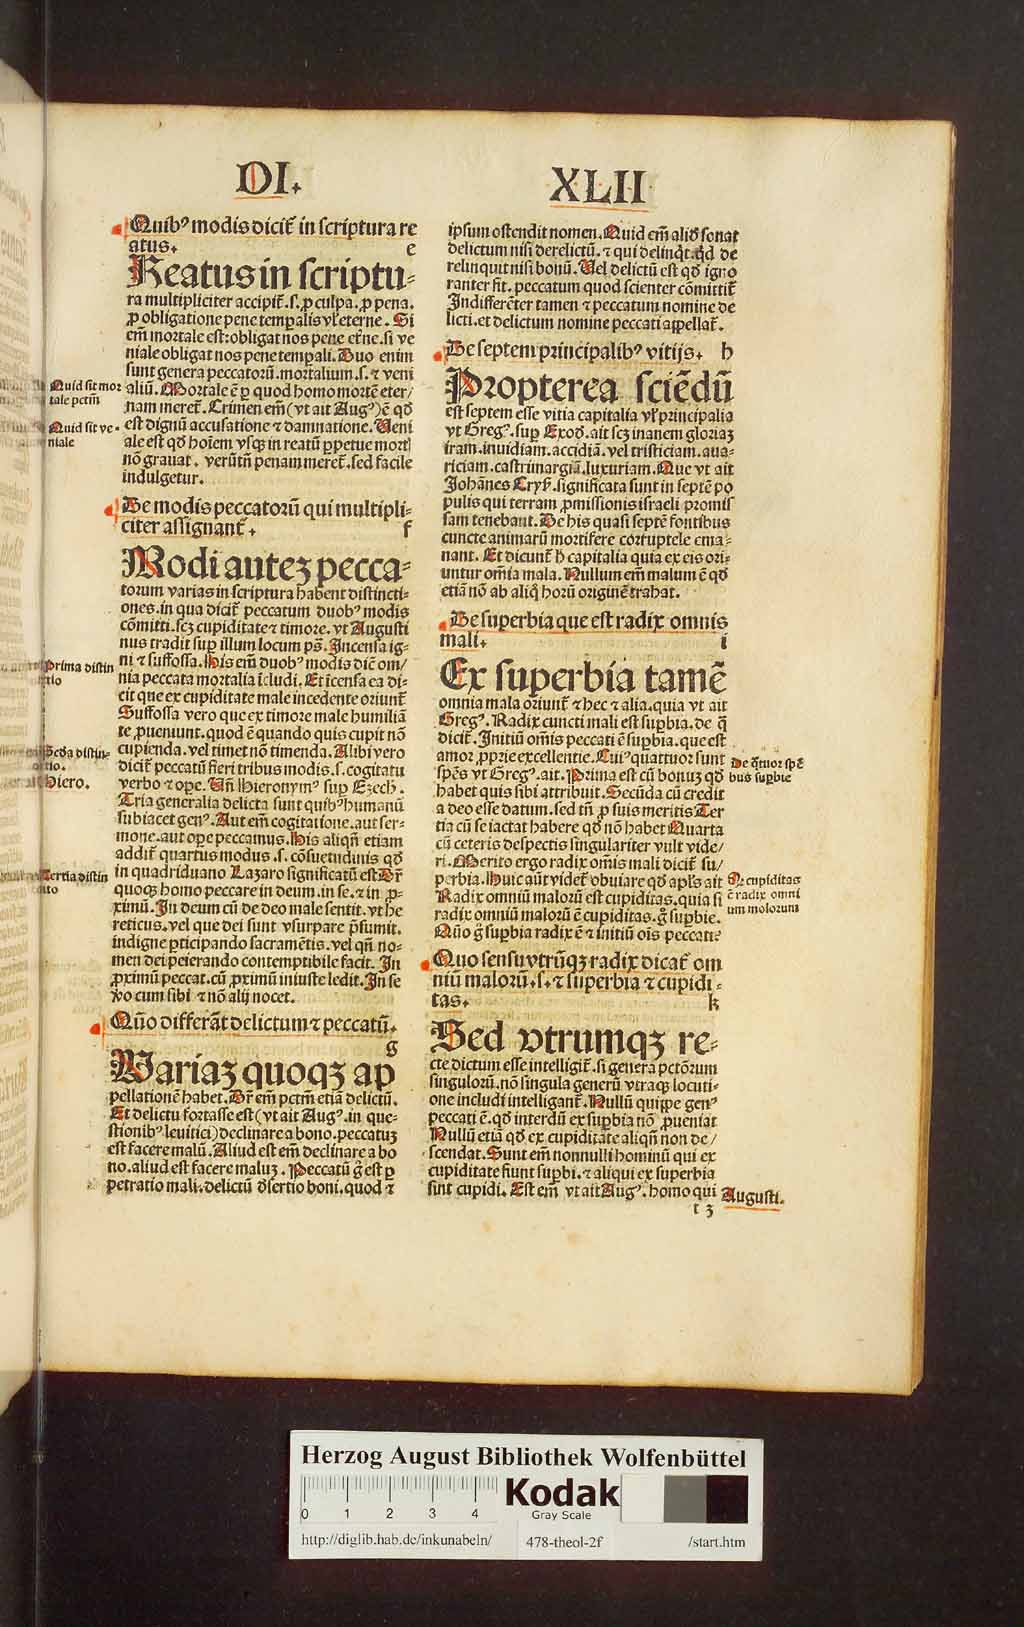 DI. XLII
Quibꝰ modis dicit̃ in scriptura re
atus. e
Reatus in scriptu-
ra multipliciter accipit̃. s. ꝓ culpa. ꝓ pena.
ꝓ obligatione pene temꝑalis vł eterne. Si
em̃ mortale est: obligat nos pene eterne. si ve
niale obligat nos pene tempali. Duo enim
sunt genera peccatorũ. mortalium. s. ⁊ veni
aliũ. Mortale ē ꝑ quod homo mortē eter/
nam meret̃. Crimen em̃ (vt ait Augꝰ) ē qđ
est dignũ accusatione ⁊ damnatione. Veni
ale est qđ hoīem vsqꝫ in reatũ ꝑpetue mort
nō grauat. verũtñ penam meret̃. sed facile
indulgetur.
De modis peccatorũ qui multipli-
citer assignant̃. f
Modi auteꝫ pecca-
torum varias in scriptura habent distincti-
ones. in qua dicit̃ peccatum duobꝰ modis
cōmitti. scꝫ cupiditate ⁊ timore. vt Augusti
nus tradit suꝑ illum locum ps̃. Incensa ig-
ni ⁊ suffossa. His em̃ duobꝰ modis dic̃ om/
nia peccata mortalia īcludi. Et īcensa ea di-
cit que ex cupiditate male incedente oriunt̃
Suffossa vero que ex timore male humiliā
te ꝓueniunt. quod ē quando quis cupit nō
cupienda. vel timet nō timenda. Alibi vero
dicit̃ peccatũ fieri tribus modis. s. cogitatu
verbo ⁊ oꝑe. Vñ Hieronymꝰ suꝑ Ezech.
Tria generalia delicta sunt quibꝰ humanũ
subiacet genꝰ. Aut em̃ cogitatione. aut ser-
mone. aut oꝑe peccamus. His aliqñ etiam
addit̃ quartus modus. s. cōsuetudinis qđ
in quadriduano Lazaro significatũ est. Dr̃
quoqꝫ homo peccare in deum. in se. ⁊ in ꝓ-
ximũ. In deum cũ de deo male sentit. vt he
reticus. vel que dei sunt vsurpare p̃sumit.
indigne ꝑticipando sacramētis. vel qñ no-
men dei peierando contemptibile facit. In
ꝓximũ peccat. cũ ꝓximũ iniuste ledit. In se
ꝟo cum sibi ⁊ nō alij nocet.
Quō differāt delictum ⁊ peccatũ.
g
Variaꝫ quoqꝫ ap
pellationē habet. Dr̃ em̃ pctm̃ etiā delictũ.
Et delictu fortasse est (vt ait Augꝰ. in que-
stionibꝰ leuitici) declinare a bono. peccatuꝫ
est facere malũ. Aliud est em̃ declinare a bo
no. aliud est facere maluꝫ. Peccatũ g̃ est ꝑ
petratio mali. delictũ đsertio boni. quod ⁊
ipsum ostendit nomen. Quid em̃ aliđ sonat
delictum nisi derelictũ. ⁊ qui delinq̃t. qđ de
relinquit nisi bonũ. Vel delictũ est qđ igno
ranter fit. peccatum quod scienter cōmittit̃
Indifferēter tamen ⁊ peccatum nomine de
licti. et delictum nomine peccati appellat̃.
De septem principalibꝰ vitijs. h
Propterea sciēdũ
est septem esse vitia capitalia vł principalia
vt Gregꝰ. suꝑ Exođ. ait scꝫ inanem gloriaꝫ
iram. inuidiam. accidiā. vel tristiciam. aua-
riciam. castrimargiā. luxuriam. Que vt ait
Johānes Crys̃. significata sunt in septē po
pulis qui terram ꝓmissionis israeli promis
sam tenebant. De his quasi septē fontibus
cuncte animarũ mortifere corruptele ema-
nant. Et dicunt̃ h̃ capitalia quia ex eis ori-
untur om̃ia mala. Nullum em̃ malum ē qđ
etiā nō ab aliq̃ horũ originē trahat.
De superbia que est radix omnis
mali. i
Ex superbia tamē
omnia mala oriunt̃ ⁊ hec ⁊ alia. quia vt ait
Gregꝰ. Radix cuncti mali est suꝑbia. de q̃
dicit̃. Initiũ om̃is peccati ē suꝑbia. que est
amor ꝓprie excellentie. Cuiꝰ quattuor sunt
sp̃es vt Gregꝰ. ait. Prima est cũ bonuꝫ qđ
habet quis sibi attribuit. Secũda cũ credit
a deo esse datum. sed tñ ꝓ suis meritis Ter
tia cũ se iactat habere qđ nō habet Quarta
cũ ceteris despectis singulariter vult vide/
ri. Merito ergo radix om̃is mali dicit̃ su/
perbia. Huic aũt videt̃ obuiare qđ apl̃s ait
Radix omniũ malorũ est cupiditas. quia si
radix omniũ malorũ ē cupiditas. g̃ suꝑbie.
Quō g̃ suꝑbia radix ē ⁊ initiũ oīs peccati?
Quo sensu vtrũqꝫ radix dicat̃ om
niũ malorũ. s. ⁊ superbia ⁊ cupidi-
tas. k
Sed vtrumqꝫ re-
cte dictum esse intelligit̃. si genera pctōrum
singulorũ. nō singula generũ vtraqꝫ locuti-
one includi intelligant̃. Nullũ quippe genꝰ
peccati ē. qđ interdũ ex suꝑbia nō ꝓueniat
Nullũ etiā qđ ex cupiditate aliqñ non de/
scendat. Sunt em̃ nonnulli hominũ qui ex
cupiditate fiunt suꝑbi. ⁊ aliqui ex superbia
sint cupidi. Est em̃ vt ait Augꝰ. homo qui
t 3
Quid sit mor
tale pctm̃
Quid sit ve-
niale
Prima distin
Hiero.
Tertia distin
De q̃tuor spē
bus suꝑbie
Qr̃ cupiditas
ē radix omni
um malorum
Augusti.
Herzog August Bibliothek Wolfenbüttel
0 1 2 3 4
Kodak
Gray Scale
http://diglib.hab.de/inkunabeln/ 478-theol-2f /start.htm